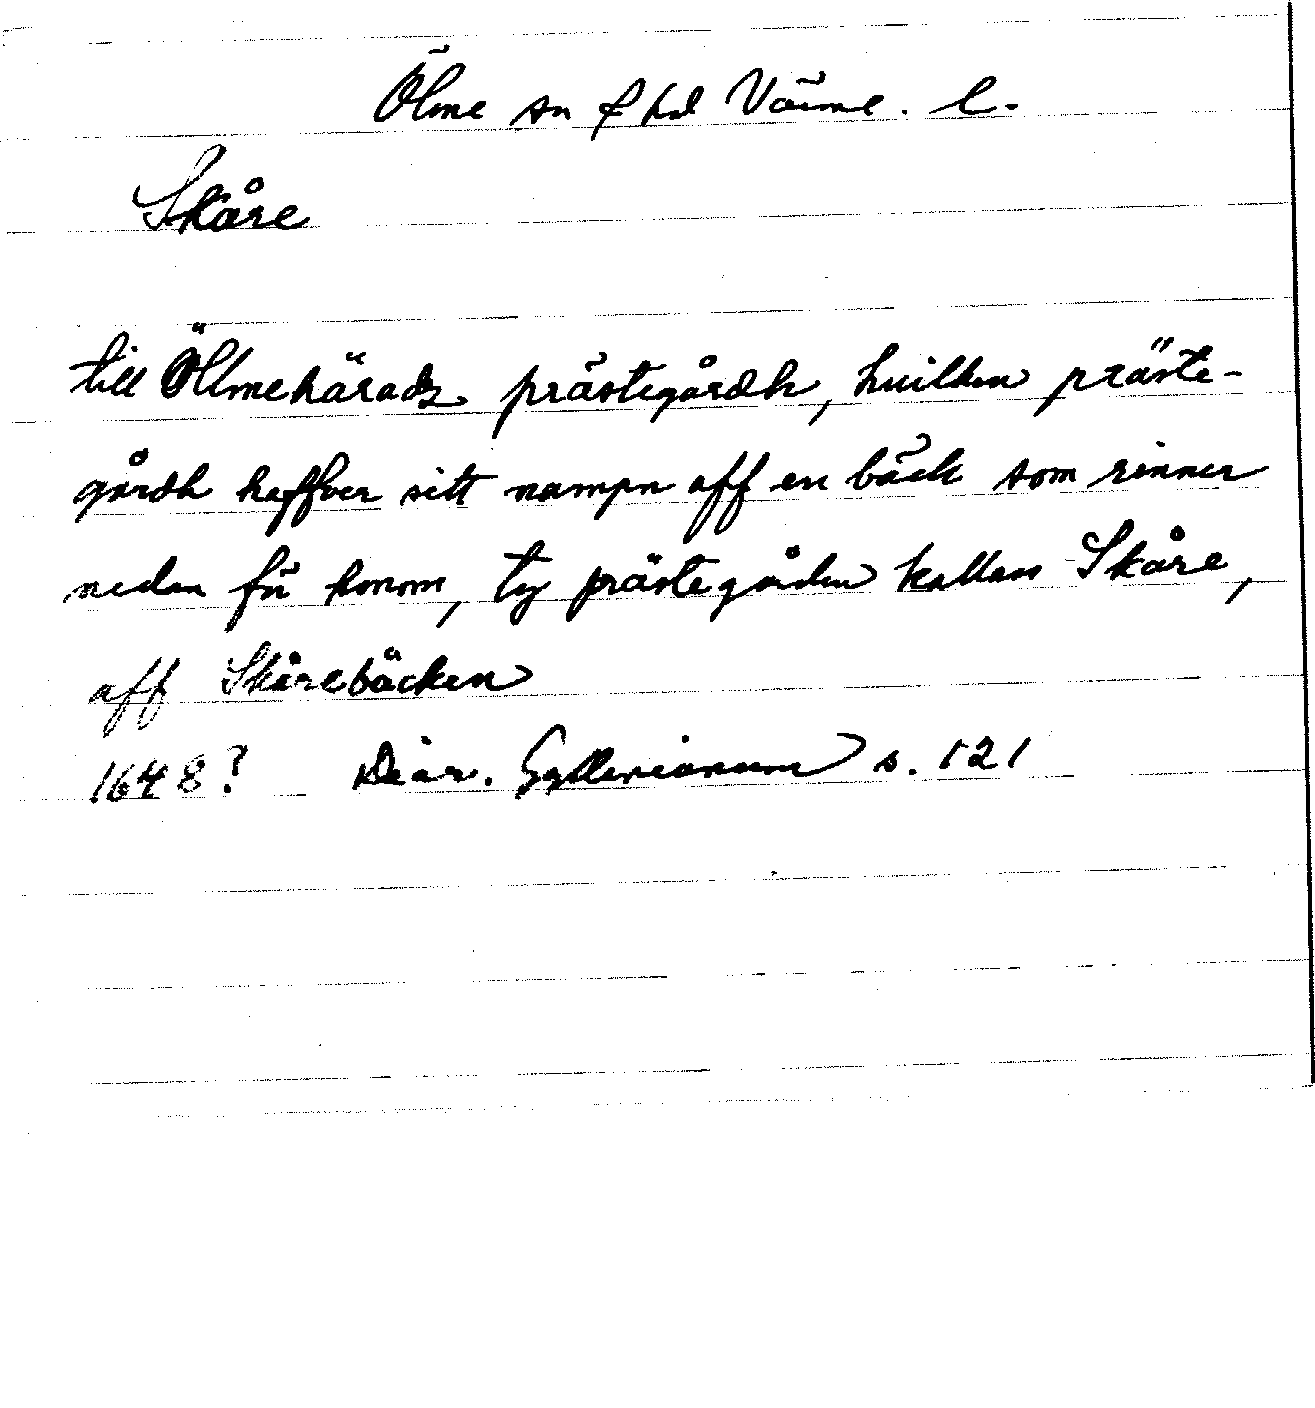 Ölme sn o hd Värml. l.
Skåre
till Ölmehäradz prästegårdh, huilken präste-
gårdh haffver sitt nampn aff en bäck som rinner
nedan för honom, ty prästegården kallass Skåre,
aff Skårebäcken
1648? Diar. Gyllenianum s. 121